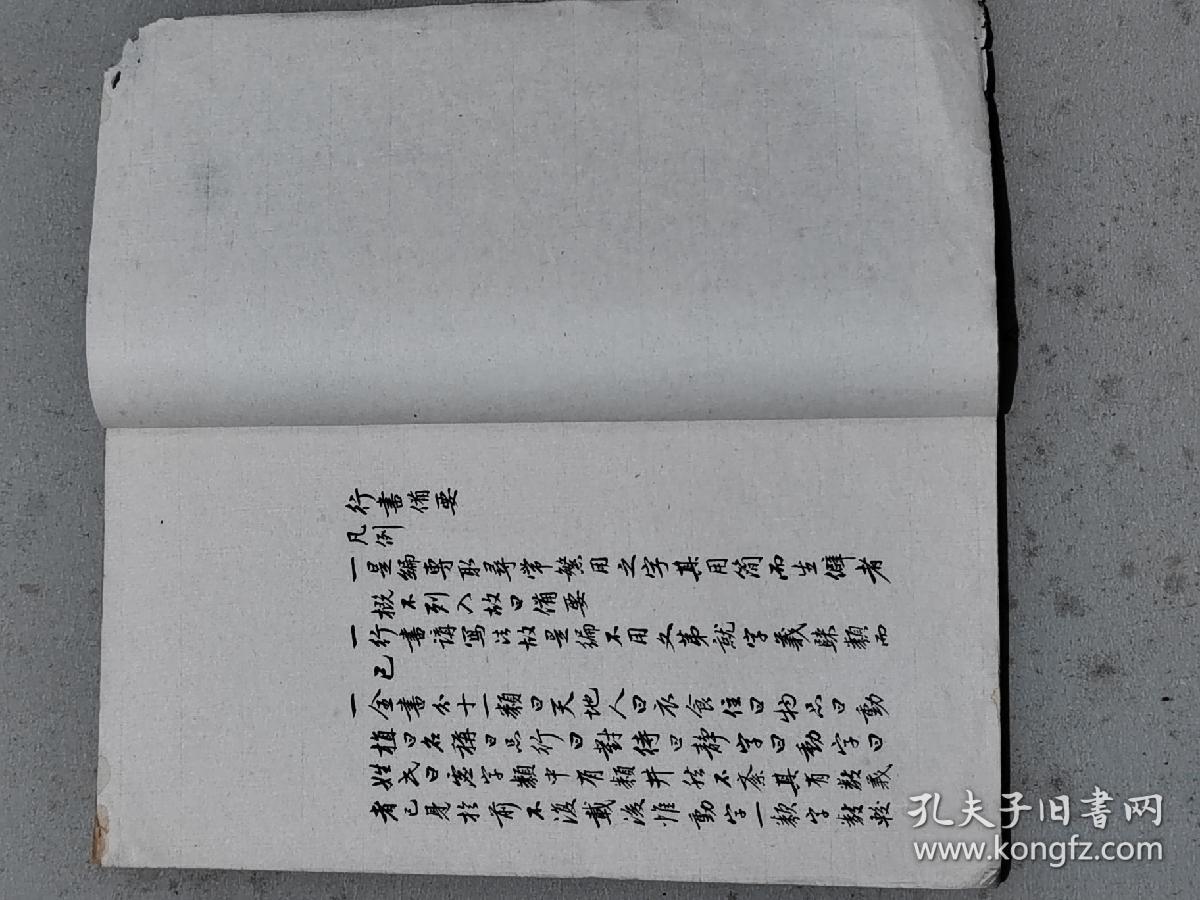 行書備要
凡例
一是編專取尋常繁用之字其用簡而生僻者
概不列入故曰備要
一行書講寫法故是編不用文第就字義聯類而
已
一全書分十一類曰天地人曰衣食住曰物品曰動
植曰名稱曰品行曰對待曰靜字曰動字曰
姓氏曰虛字類中有類井然不紊其有數義
者已見於前不復載後惟動字一類字數較
孔夫子旧书网
www.kongfz.com